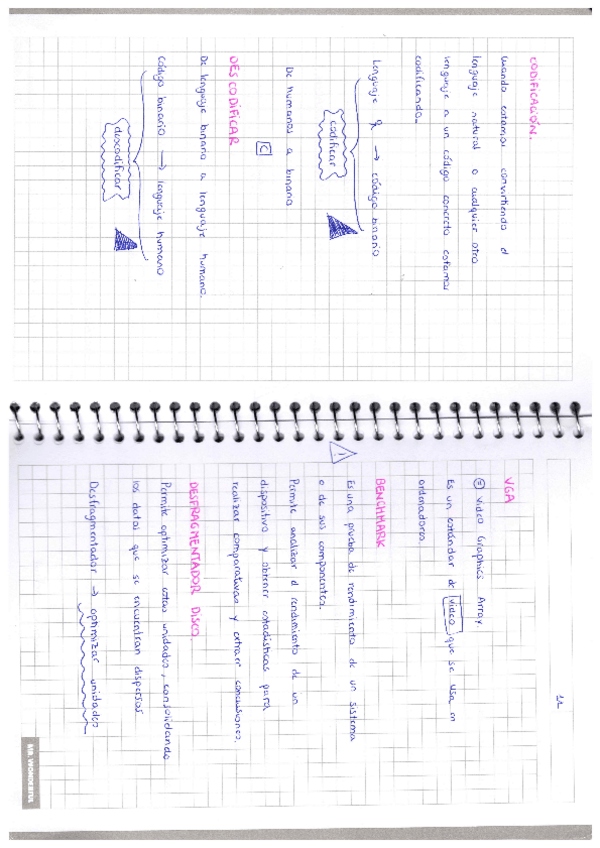 CODIFICACIÓN.
Cuando estamos convirtiendo el
lenguaje natural o cualquier otro
lenguaje a un código concreto estamos
codificando.
Lenguaje → código binario
codificar
De humanos a binario
C
DESCODIFICAR
De lenguaje binario a lenguaje humano.
Código binario → lenguaje humano
descodificar
11
VGA
Video Graphics Array.
Es un estándar de video que se usa en
ordenadores.
BENCHMARK
Es una prueba de rendimiento de un sistema
o de sus componentes.
Permite analizar el rendimiento de un
dispositivo y obtener estadísticas para
realizar comparativas y extraer conclusiones.
DESFRAGMENTADOR DISCO
Permite optimizar estas unidades, consolidando
los datos que se encuentran dispersos
Desfragmentador → optimizar unidades
MR. WONDERFUL